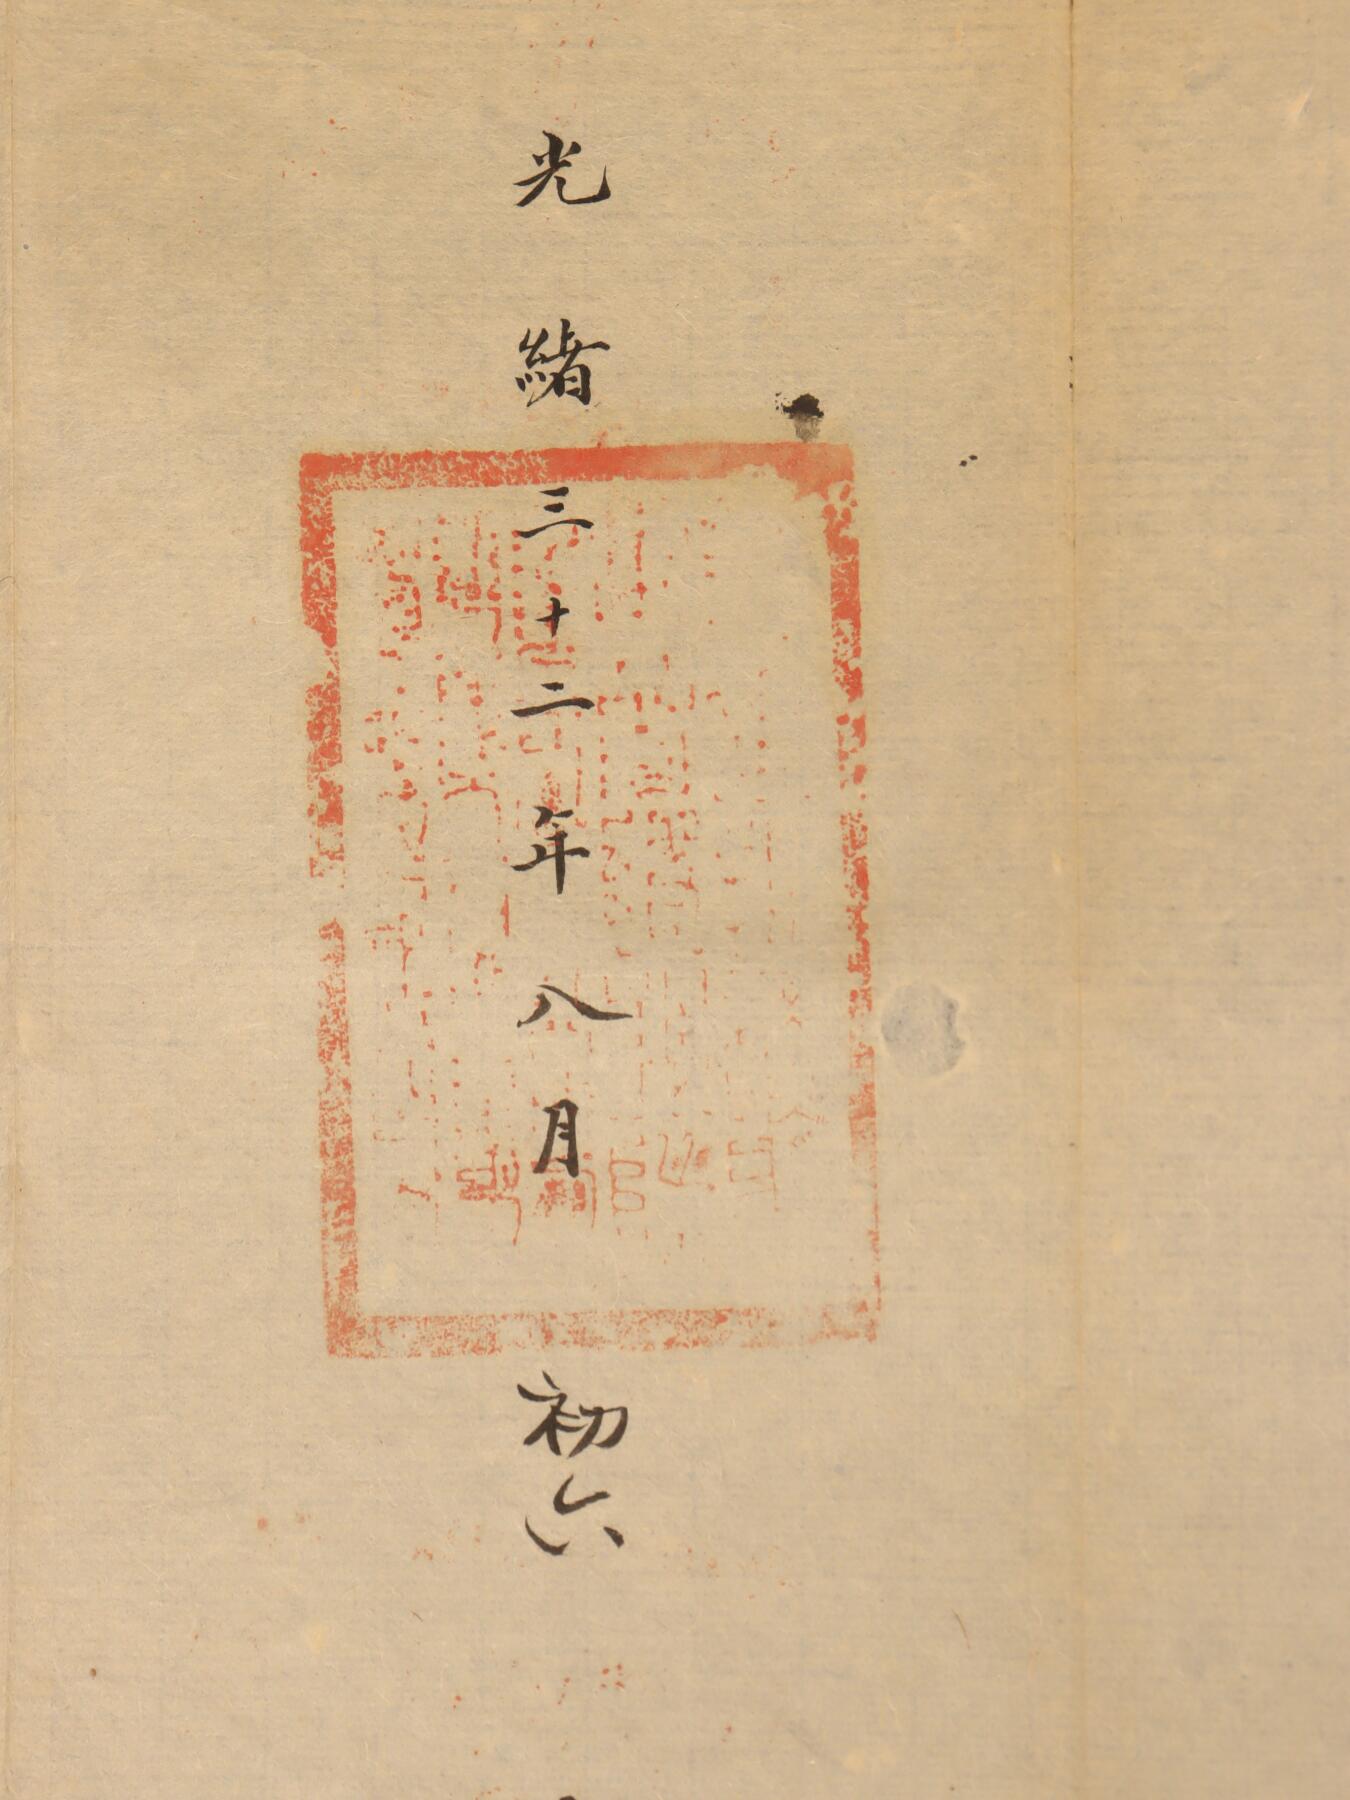 光緒三十二年八月初六